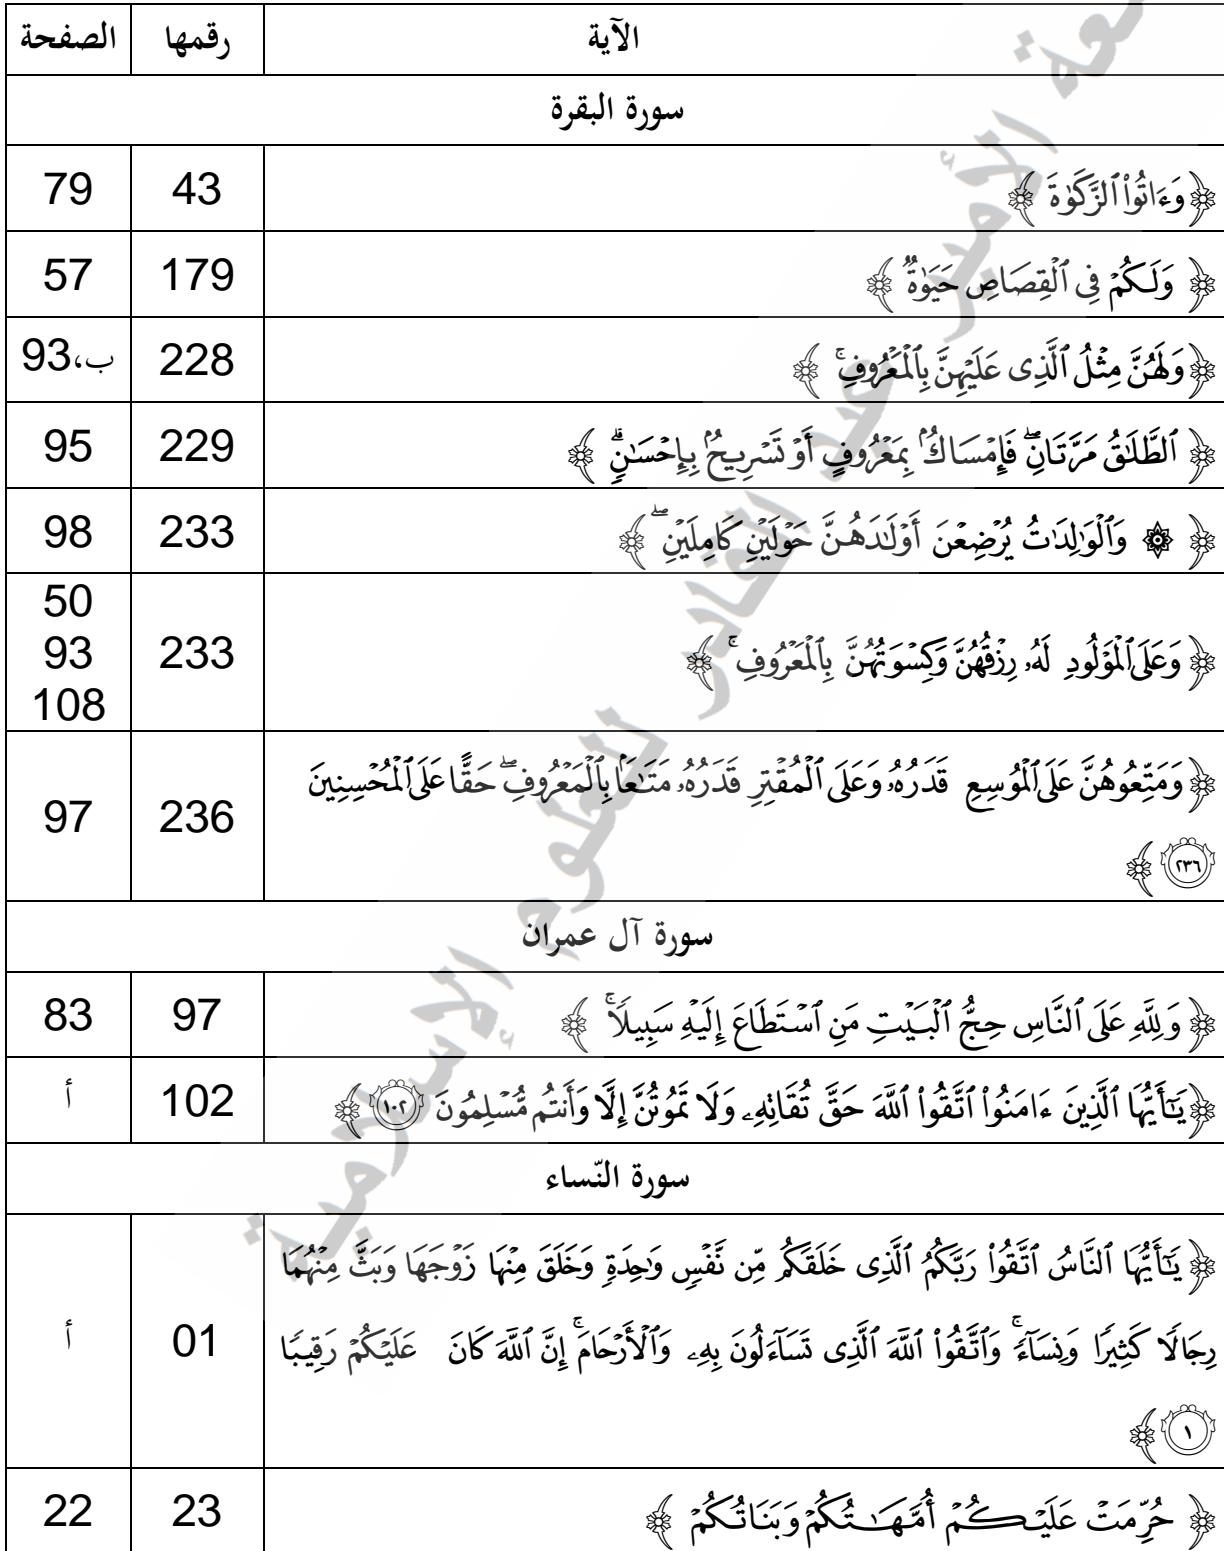 الآية رقمها الصفحة
سورة البقرة
﴿وَءَاتُوا۟ ٱلزَّكَوٰةَ ﴾ 43 79
﴿ وَلَكُمْ فِى ٱلْقِصَاصِ حَيَوٰةٌ ﴾ 179 57
﴿وَلَهُنَّ مِثْلُ ٱلَّذِى عَلَيْهِنَّ بِٱلْمَعْرُوفِ ۚ ﴾ 228 ب،93
﴿ ٱلطَّلَـٰقُ مَرَّتَانِ ۖ فَإِمْسَاكٌۢ بِمَعْرُوفٍ أَوْ تَسْرِيحٌۢ بِإِحْسَـٰنٍ ۗ ﴾ 229 95
﴿ ۞ وَٱلْوَٰلِدَٰتُ يُرْضِعْنَ أَوْلَـٰدَهُنَّ حَوْلَيْنِ كَامِلَيْنِ ۖ ﴾ 233 98
50
﴿وَعَلَى ٱلْمَوْلُودِ لَهُۥ رِزْقُهُنَّ وَكِسْوَتُهُنَّ بِٱلْمَعْرُوفِ ۚ ﴾ 233 93
108
﴿وَمَتِّعُوهُنَّ عَلَى ٱلْمُوسِعِ قَدَرُهُۥ وَعَلَى ٱلْمُقْتِرِ قَدَرُهُۥ مَتَـٰعًۢا بِٱلْمَعْرُوفِ ۖ حَقًّا عَلَى ٱلْمُحْسِنِينَ 236 97
٢٣٦ ﴾
سورة آل عمران
﴿ وَلِلَّهِ عَلَى ٱلنَّاسِ حِجُّ ٱلْبَيْتِ مَنِ ٱسْتَطَاعَ إِلَيْهِ سَبِيلًا ۚ ﴾ 97 83
﴿يَـٰٓأَيُّهَا ٱلَّذِينَ ءَامَنُوا۟ ٱتَّقُوا۟ ٱللَّهَ حَقَّ تُقَاتِهِۦ وَلَا تَمُوتُنَّ إِلَّا وَأَنتُم مُّسْلِمُونَ ١٠٢ ﴾ 102 أ
سورة النّساء
﴿ يَـٰٓأَيُّهَا ٱلنَّاسُ ٱتَّقُوا۟ رَبَّكُمُ ٱلَّذِى خَلَقَكُم مِّن نَّفْسٍ وَٰحِدَةٍ وَخَلَقَ مِنْهَا زَوْجَهَا وَبَثَّ مِنْهُمَا
رِجَالًا كَثِيرًا وَنِسَآءً ۚ وَٱتَّقُوا۟ ٱللَّهَ ٱلَّذِى تَسَآءَلُونَ بِهِۦ وَٱلْأَرْحَامَ ۚ إِنَّ ٱللَّهَ كَانَ عَلَيْكُمْ رَقِيبًا 01 أ
١ ﴾
﴿ حُرِّمَتْ عَلَيْكُمْ أُمَّهَـٰتُكُمْ وَبَنَاتُكُمْ ﴾ 23 22
الأمير عبد القادر للعلوم الإسلامية